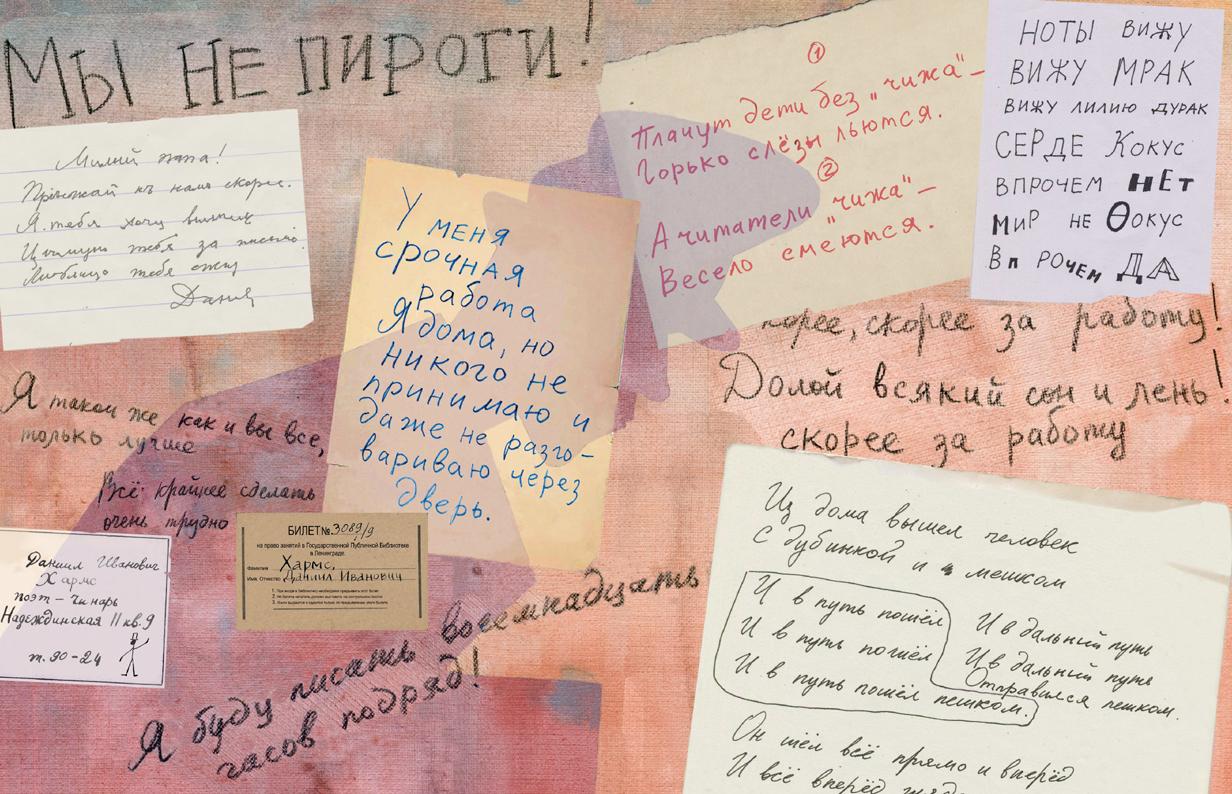 МЫ НЕ ПИРОГИ!
Милый папа!
Пріѣзжай къ намъ скорѣе.
Я тебя хочу видѣть
Цѣлую тебя за письмо.
тебя
Даня
У меня
срочная
работа
Я дома, но
никого не
принимаю и
даже не разго-
вариваю через
дверь.
①
Плачут дети без „чижа"—
Горько слёзы льются.
②
А читатели „чижа"—
Весело смеются.
НОТЫ ВИЖУ
ВИЖУ МРАК
ВИЖУ ЛИЛИЮ ДУРАК
СЕРДЕ КОКУС
ВПРОЧЕМ НЕТ
МИР НЕ ѲОКУС
Вп РОЧЕМ ДА
скорее за работу!
Долой всякий сон и лень!
скорее за работу
Я такой же как и вы все,
только лучше
Всё крайнее сделать
очень трудно
Даниил Иванович
Хармс
поэт — чинарь
Надеждинская 11 кв. 9
т. 90-24
БИЛЕТ №. 3089/9
на право занятий в Государственной Публичной Библиотеке
в Ленинграде.
Фамилия Хармс,
Имя, Отчество Даниил Иванович
Я буду писать восемнадцать
часов подряд!
Из дома вышел человек
С дубинкой и мешком
И в путь пошёл
И в путь пошёл
И в путь пошёл пешком.
И в дальний путь
И в дальний путь
Отправился пешком.
Он шёл всё прямо и вперёд
И всё вперёд